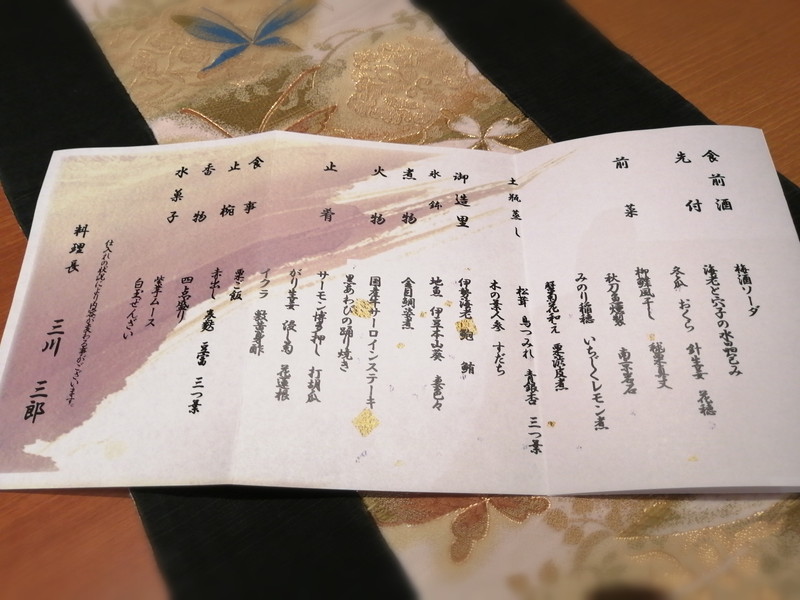 食前酒
梅酒ソーダ
先付
海老と穴子の水晶包み
冬瓜 おくら 針生姜 花穂
前菜
柳鰈風干し 穂束真丈
秋刀魚燻製 南京岩石
みのり稲穂 いちじくレモン煮
蟹菊花和え 栗渋皮煮
土瓶蒸し
松茸 鳥つみれ 青銀杏 三つ葉
木の葉人参 すだち
御造里
伊勢海老 鮑 鮪
氷鉢
地魚 伊豆本山葵 妻色々
煮物
金目鯛姿煮
火物
国産牛サーロインステーキ
黒あわびの踊り焼き
止肴
サーモン博多押し 打胡瓜
がり生姜 浸し菊 花蓮根
イクラ 黄身酢
食事
栗ご飯
止椀
赤出し 豆富 三つ葉
香物
四点盛り
水菓子
紫芋ムース
白玉ぜんざい
仕入れの状況により内容が変わる事がございます。
料理長 三川 三郎